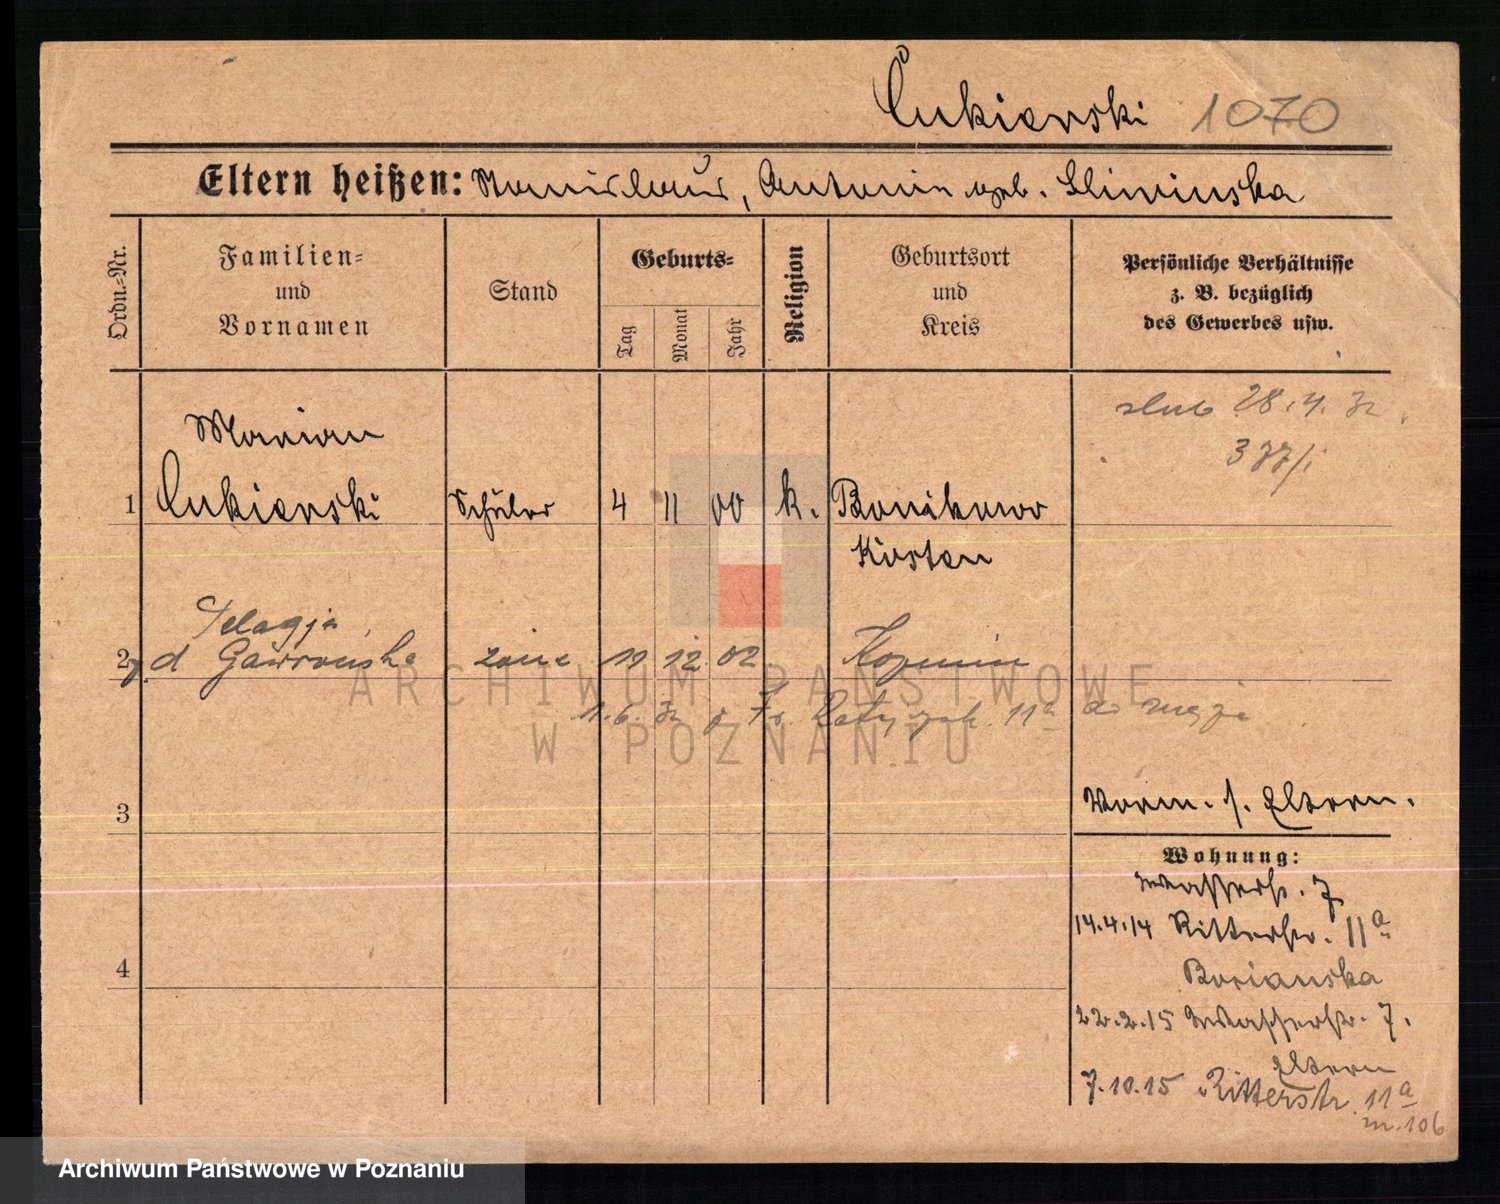 Łukierski 1070
Eltern heißen: Stanislaus, Antonie geb. Sliwinska
Ordn.-Nr.
Familien-
und
Vornamen
Stand
Geburts-
Tag
Monat
Jahr
Religion
Geburtsort
und
Kreis
Persönliche Verhältnisse
z. B. bezüglich
des Gewerbes usw.
slub 28.4.32
377/i
Marian
1 Łukierski Schüler 4 11 00 k. Bonikowo
Kosten
Pelagja
2 d Gawronska żona 11 12 02
1.6.32
ARCHIWUM PAŃSTWOWE
W POZNANIU
3
Vorm. s. Eltern.
Wohnung:
Wasserstr. 7
14.4.14 Ritterstr. 11a
4
22.2.15 Wasserstr. 7.
Eltern
7.10.15 Ritterstr. 11a
m. 106
Archiwum Państwowe w Poznaniu